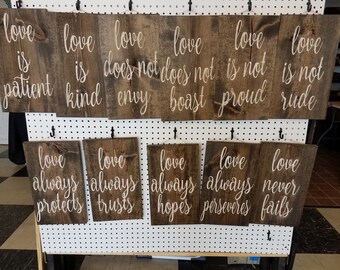 love
is
patient
love
is
kind
love
does not
envy
love
does not
boast
love
is not
proud
love
is not
rude
love
always
protects
love
always
trusts
love
always
hopes
love
always
perseveres
love
never
fails